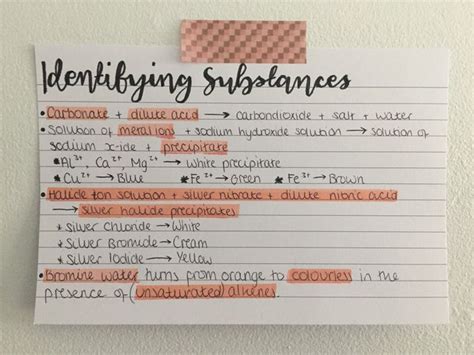 Identifying Substances
• Carbonate + dilute acid → carbondioxide + salt + water
• Solution of metal ions + sodium hydroxide solution → solution of
sodium x-ide + precipitate
* Al³⁺, Ca²⁺, Mg²⁺ → white precipitate
* Cu²⁺ → Blue * Fe²⁺ → Green * Fe³⁺ → Brown
• Halide ion solution + silver nitrate + dilute nitric acid
→ silver halide precipitates
* Silver Chloride → White
* Silver Bromide → Cream
* Silver Iodide → Yellow
• Bromine water turns from orange to colourless in the
presence of (unsaturated) alkenes.